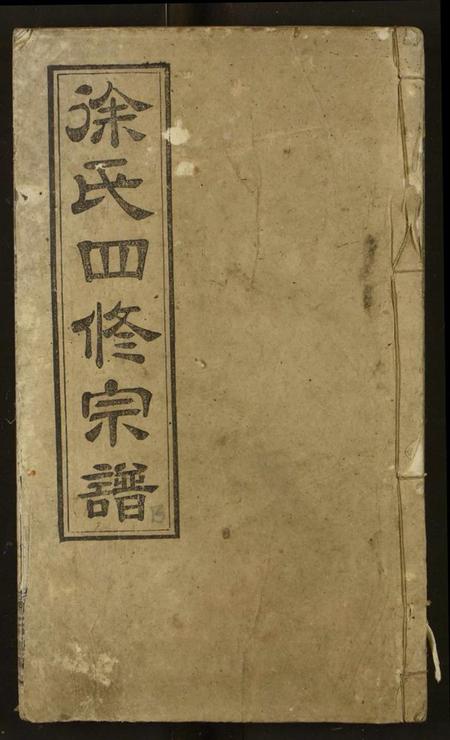 徐氏四修宗譜